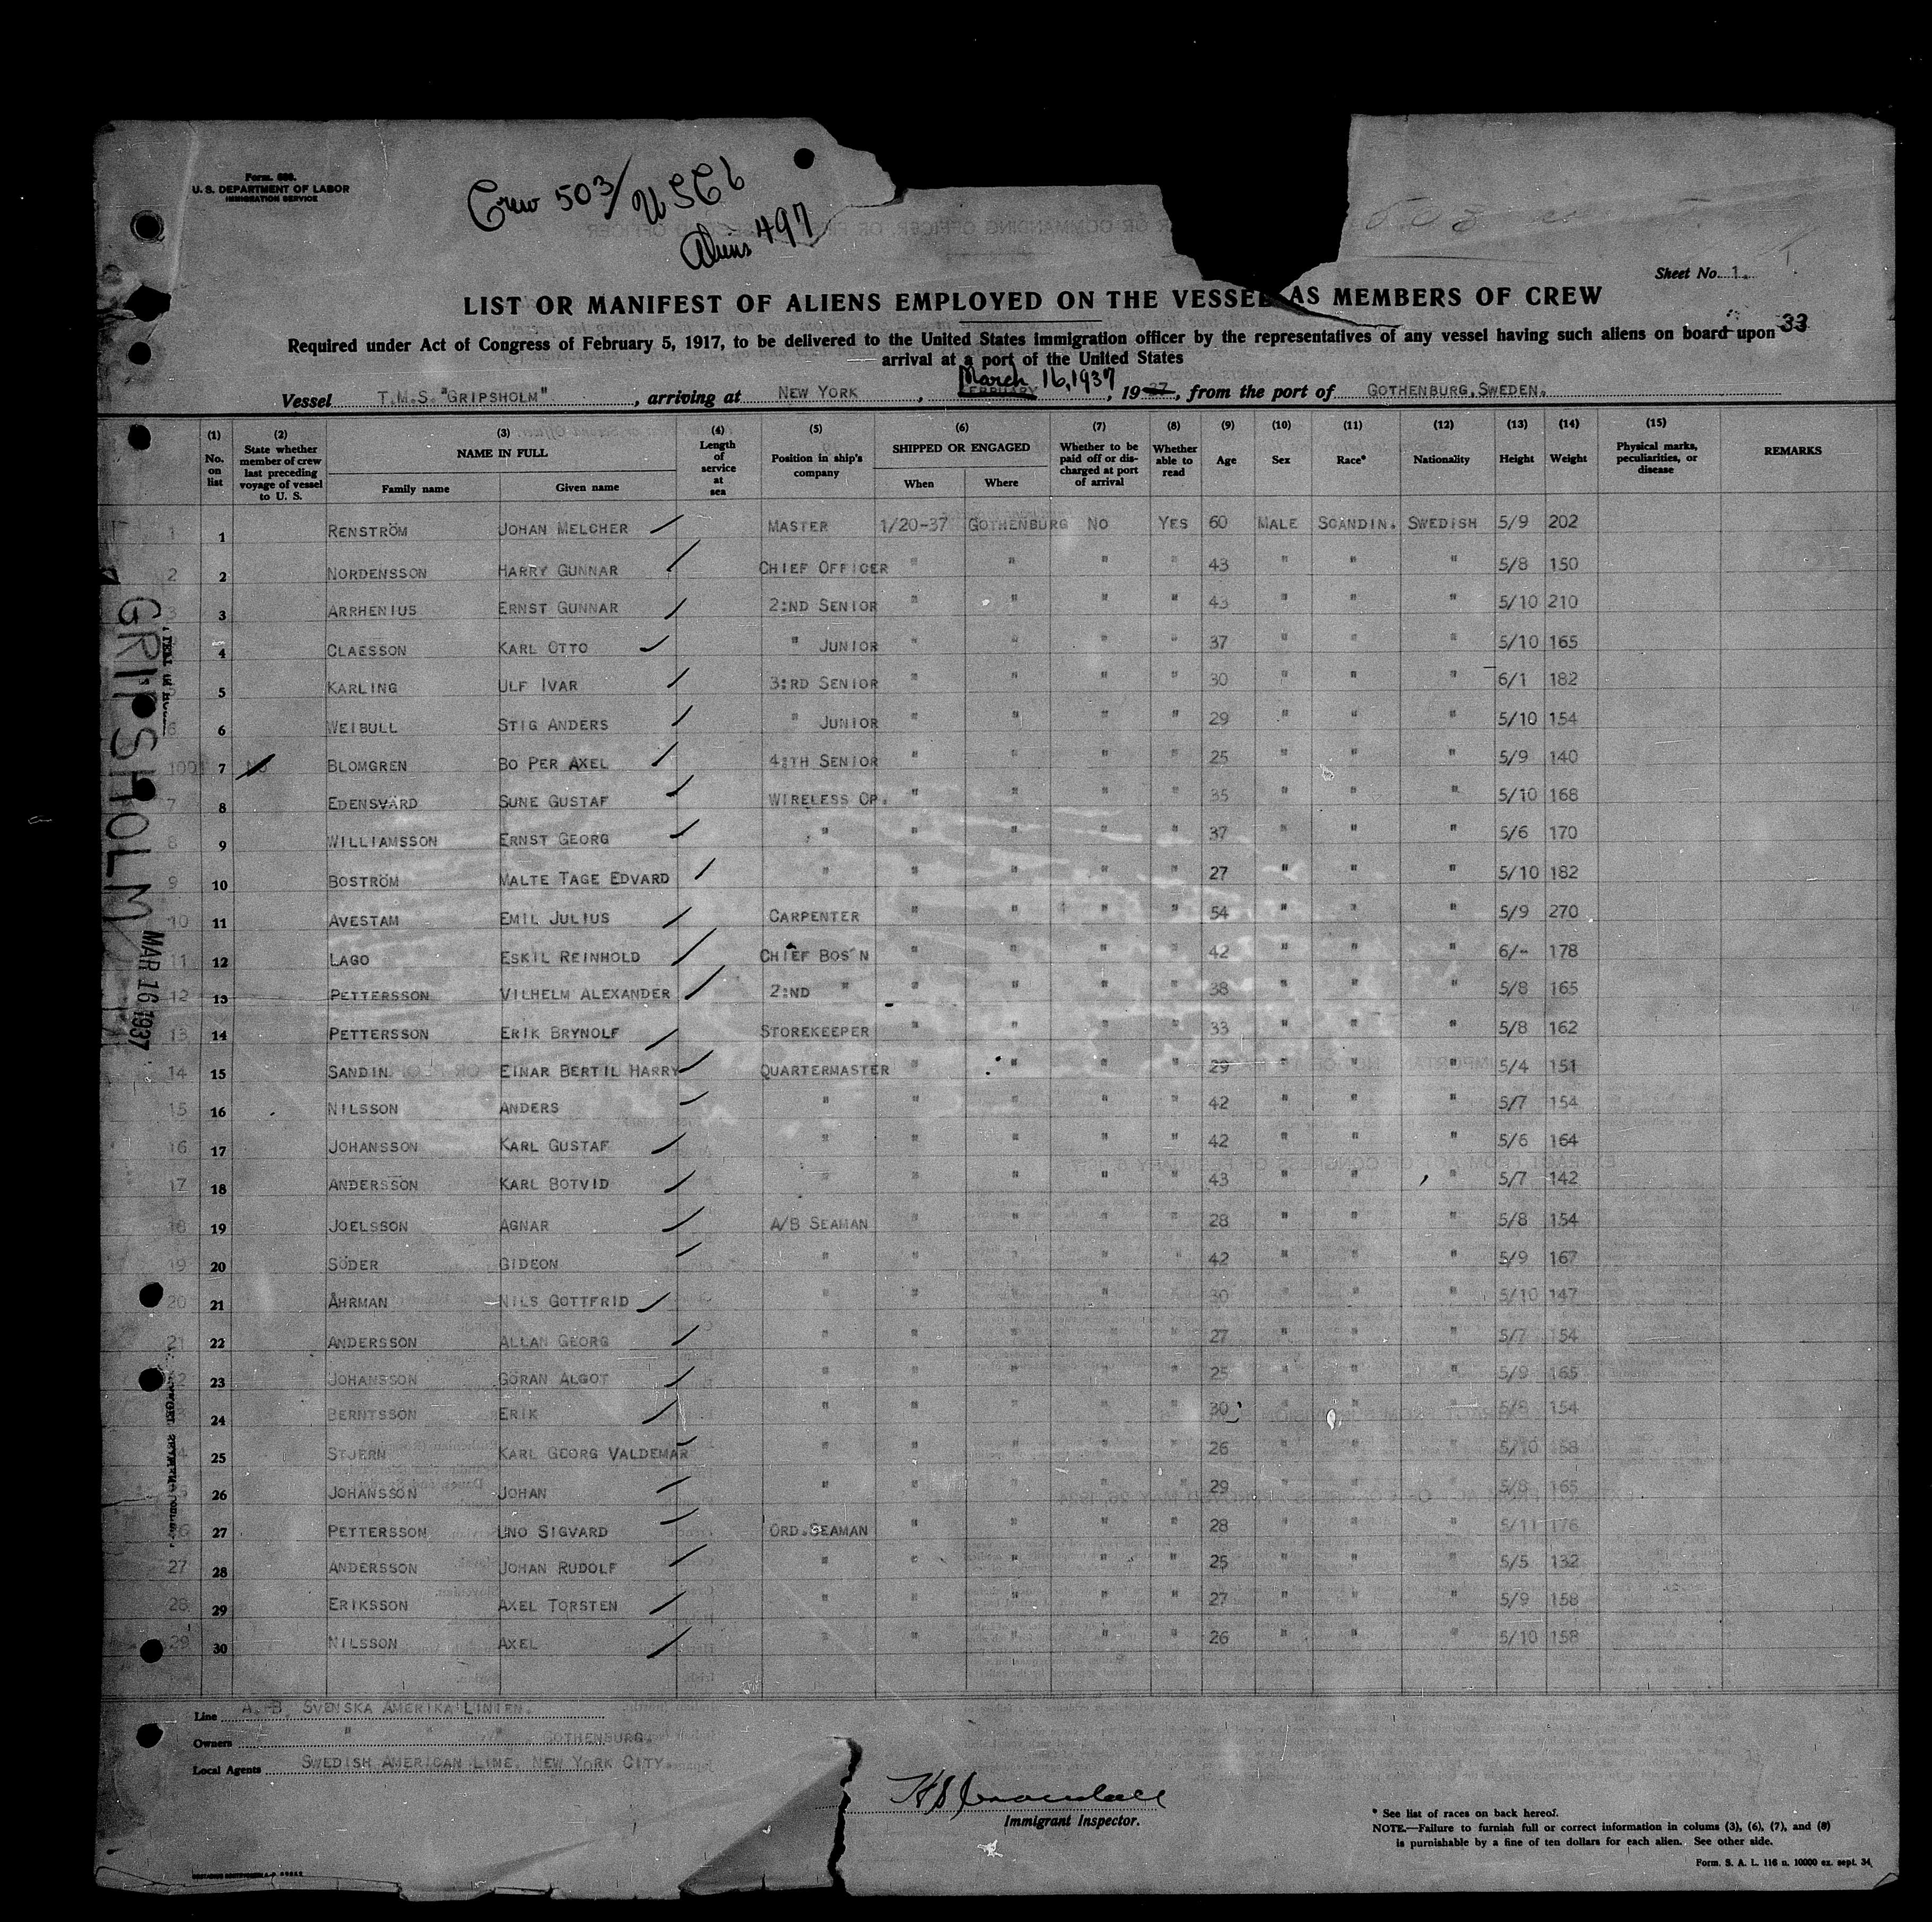 Form. 689.
U. S. DEPARTMENT OF LABOR
IMMIGRATION SERVICE
Crew 503/
Aliens 497
Sheet No. 1.
LIST OR MANIFEST OF ALIENS EMPLOYED ON THE VESSEL AS MEMBERS OF CREW
33
Required under Act of Congress of February 5, 1917, to be delivered to the United States immigration officer by the representatives of any vessel having such aliens on board upon
arrival at a port of the United States
March 16, 1937
Vessel T.M.S. "GRIPSHOLM" , arriving at NEW YORK , FEBRUARY , 19 37, from the port of GOTHENBURG, SWEDEN.
(1) No. on list (2) State whether member of crew last preceding voyage of vessel to U. S. (3) NAME IN FULL Family name Given name (4) Length of service at sea (5) Position in ship's company (6) SHIPPED OR ENGAGED When Where (7) Whether to be paid off or discharged at port of arrival (8) Whether able to read (9) Age (10) Sex (11) Race* (12) Nationality (13) Height (14) Weight (15) Physical marks, peculiarities, or disease REMARKS
1 1 RENSTRÖM JOHAN MELCHER MASTER 1/20-37 GOTHENBURG NO YES 60 MALE SCANDIN. SWEDISH 5/9 202
2 2 NORDENSSON HARRY GUNNAR CHIEF OFFICER " " " " 43 " " " 5/8 150
3 3 ARRHENIUS ERNST GUNNAR 2:ND SENIOR " " " " 43 " " " 5/10 210
4 CLAESSON KARL OTTO " JUNIOR " " " " 37 " " " 5/10 165
5 KARLING ULF IVAR 3:RD SENIOR " " " " 30 " " " 6/1 182
6 6 WEIBULL STIG ANDERS " JUNIOR " " " " 29 " " " 5/10 154
7 NO BLOMGREN BO PER AXEL 4:TH SENIOR " " " " 25 " " " 5/9 140
7 8 EDENSVÄRD SUNE GUSTAF WIRELESS OP. " " " " 35 " " " 5/10 168
8 9 WILLIAMSSON ERNST GEORG " " " " " 37 " " " 5/6 170
9 10 BOSTRÖM MALTE TAGE EDVARD " " " " " 27 " " " 5/10 182
10 11 AVESTAM EMIL JULIUS CARPENTER " " " " 54 " " " 5/9 270
11 12 LAGO ESKIL REINHOLD CHIEF BOS'N " " " " 42 " " " 6/- 178
12 13 PETTERSSON VILHELM ALEXANDER 2:ND " " " " " 38 " " " 5/8 165
13 14 PETTERSSON ERIK BRYNOLF STOREKEEPER " " " " 33 " " " 5/8 162
14 15 SANDIN EINAR BERTIL HARRY QUARTERMASTER " " " " 29 " " " 5/4 151
15 16 NILSSON ANDERS " " " " " 42 " " " 5/7 154
16 17 JOHANSSON KARL GUSTAF " " " " " 42 " " " 5/6 164
17 18 ANDERSSON KARL BOTVID " " " " " 43 " " " 5/7 142
18 19 JOELSSON AGNAR A/B SEAMAN " " " " 28 " " " 5/8 154
19 20 SÖDER GIDEON " " " " " 42 " " " 5/9 167
20 21 ÅHRMAN NILS GOTTFRID " " " " " 30 " " " 5/10 147
21 22 ANDERSSON ALLAN GEORG " " " " " 27 " " " 5/7 154
23 JOHANSSON GÖRAN ALGOT " " " " " 25 " " " 5/9 165
24 BERNTSSON ERIK " " " " " 30 " " " 5/8 154
25 STJERN KARL GEORG VALDEMAR " " " " " 26 " " " 5/10 158
26 JOHANSSON JOHAN " " " " " 29 " " " 5/8 165
27 PETTERSSON UNO SIGVARD ORD.SEAMAN " " " " 28 " " " 5/11 176
27 28 ANDERSSON JOHAN RUDOLF " " " " " 25 " " " 5/5 132
28 29 ERIKSSON AXEL TORSTEN " " " " " 27 " " " 5/9 158
29 30 NILSSON AXEL " " " " " 26 " " " 5/10 158
GRIPSHOLM
MAR 16 1937
Line A.-B. SVENSKA AMERIKA LINIEN.
Owners " " " GOTHENBURG.
Local Agents SWEDISH AMERICAN LINE, NEW YORK CITY.
Immigrant Inspector.
* See list of races on back hereof.
NOTE.—Failure to furnish full or correct information in colums (3), (6), (7), and (8)
is purnishable by a fine of ten dollars for each alien. See other side.
Form. S. A. L. 116 n. 10000 ex. sept. 34